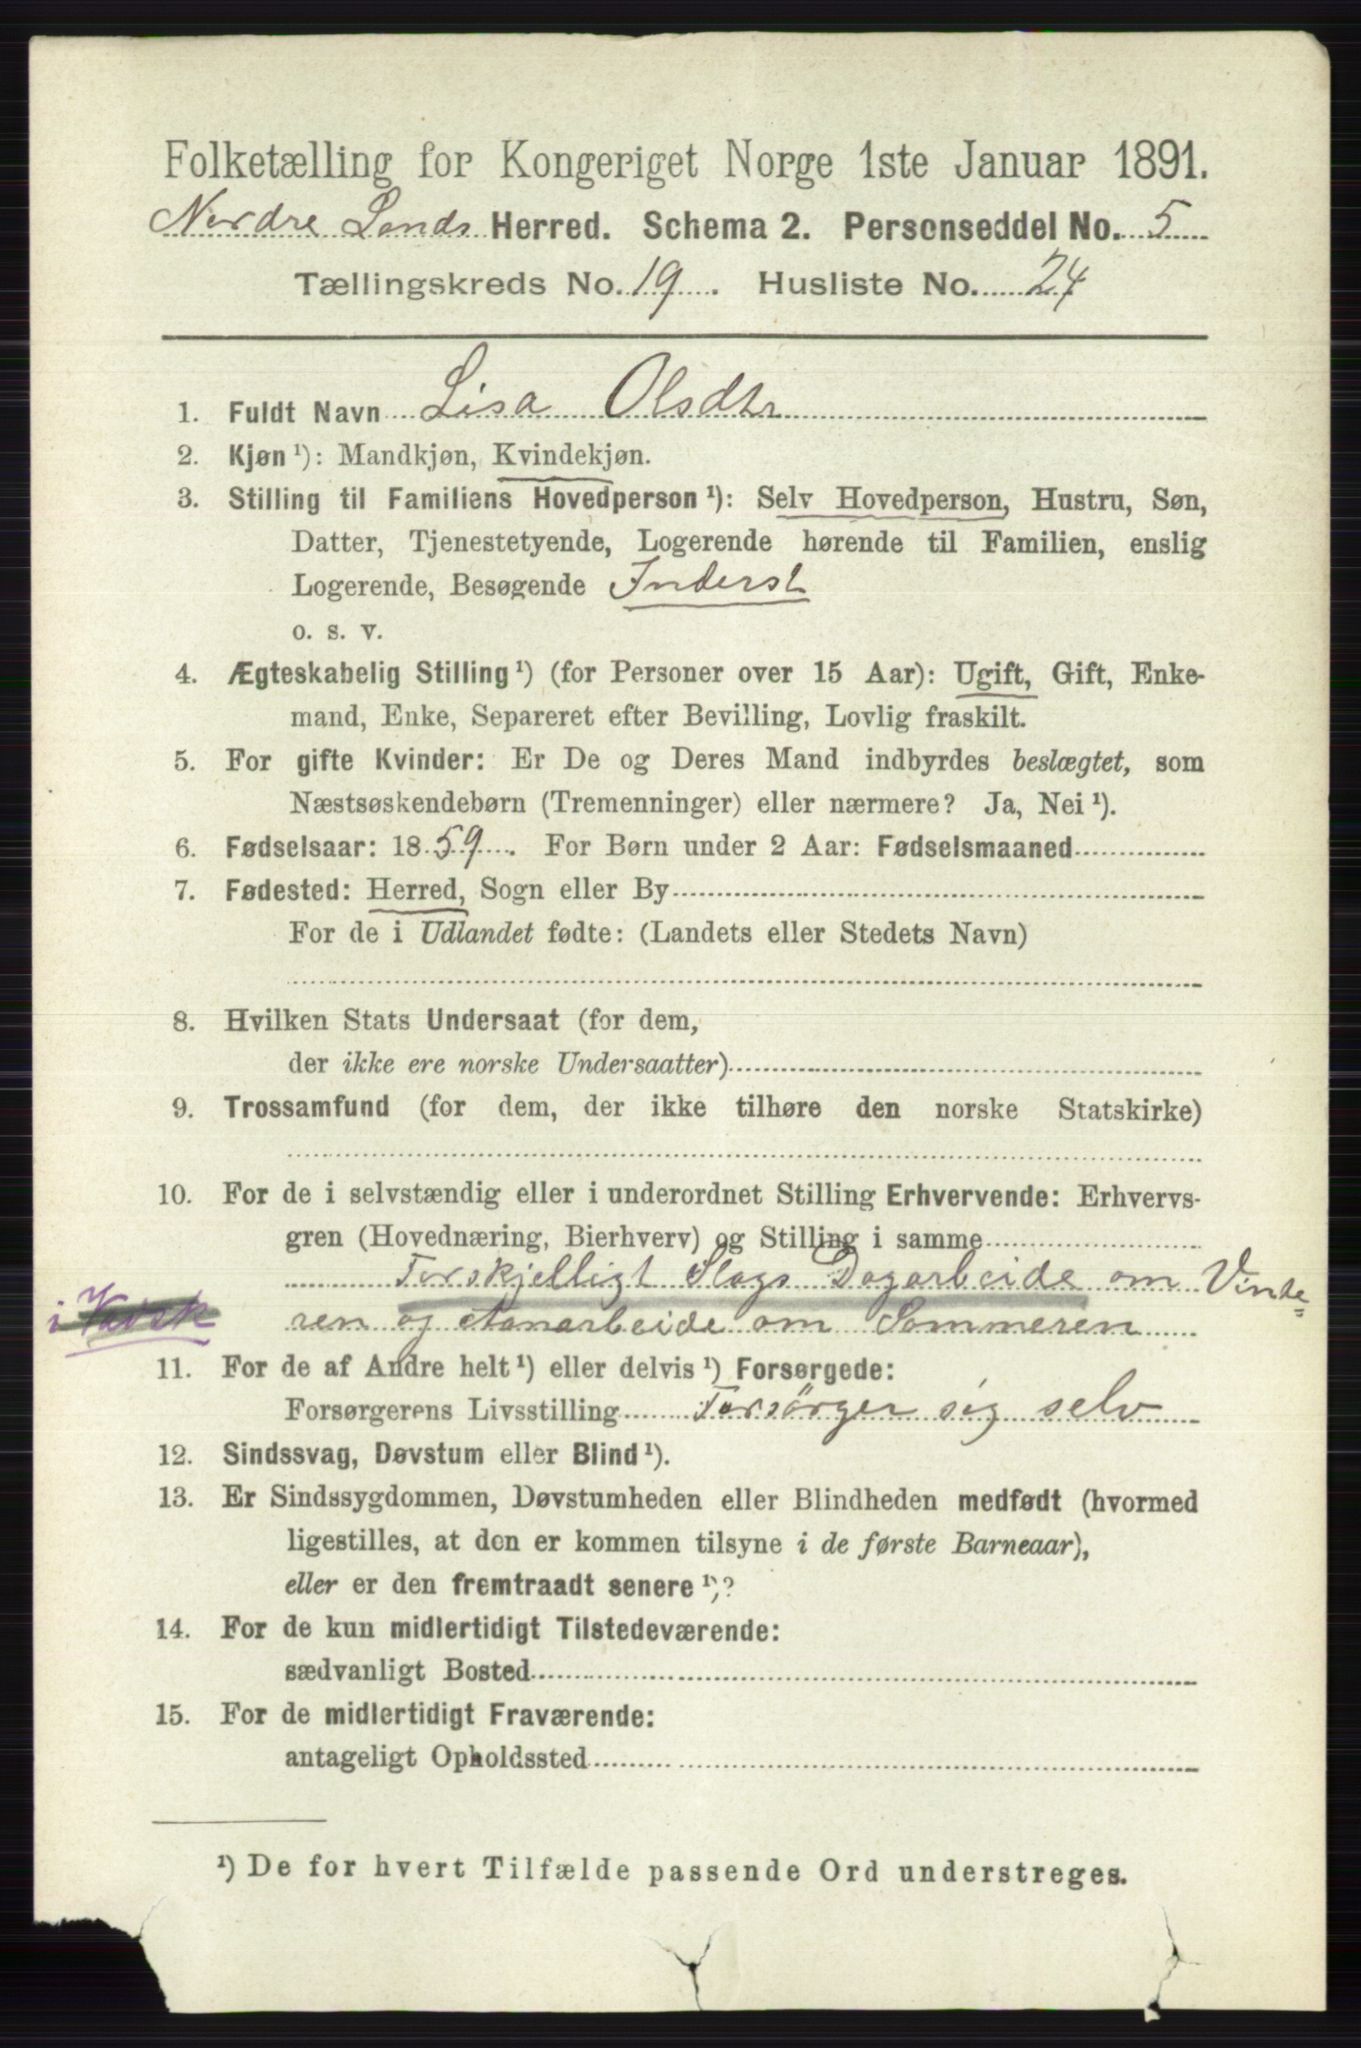 Folketælling for Kongeriget Norge 1ste Januar 1891.
Nordre Lands Herred. Schema 2. Personseddel No. 5
Tællingskreds No. 19. Husliste No. 24
1. Fuldt Navn Lisa Olsdtr
2. Kjøn ¹): Mandkjøn, Kvindekjøn.
3. Stilling til Familiens Hovedperson ¹): Selv Hovedperson, Hustru, Søn,
Datter, Tjenestetyende, Logerende hørende til Familien, enslig
Logerende, Besøgende Inderst
o. s. v.
4. Ægteskabelig Stilling ¹) (for Personer over 15 Aar): Ugift, Gift, Enke-
mand, Enke, Separeret efter Bevilling, Lovlig fraskilt.
5. For gifte Kvinder: Er De og Deres Mand indbyrdes beslægtet, som
Næstsøskendebørn (Tremenninger) eller nærmere? Ja, Nei ¹).
6. Fødselsaar: 1859. For Børn under 2 Aar: Fødselsmaaned
7. Fødested: Herred, Sogn eller By
For de i Udlandet fødte: (Landets eller Stedets Navn)
8. Hvilken Stats Undersaat (for dem,
der ikke ere norske Undersaatter)
9. Trossamfund (for dem, der ikke tilhøre den norske Statskirke)
10. For de i selvstændig eller i underordnet Stilling Erhvervende: Erhvervs-
gren (Hovednæring, Bierhverv) og Stilling i samme
Forskjelligt Slags Dagarbeide om Vinde=
i ren og Aanarbeide om Sommeren
11. For de af Andre helt ¹) eller delvis ¹) Forsørgede:
Forsørgerens Livsstilling Forsörger sig selv
12. Sindssvag, Døvstum eller Blind ¹).
13. Er Sindssygdommen, Døvstumheden eller Blindheden medfødt (hvormed
ligestilles, at den er kommen tilsyne i de første Barneaar),
eller er den fremtraadt senere ¹)?
14. For de kun midlertidigt Tilstedeværende:
sædvanligt Bosted
15. For de midlertidigt Fraværende:
antageligt Opholdssted
¹) De for hvert Tilfælde passende Ord understreges.